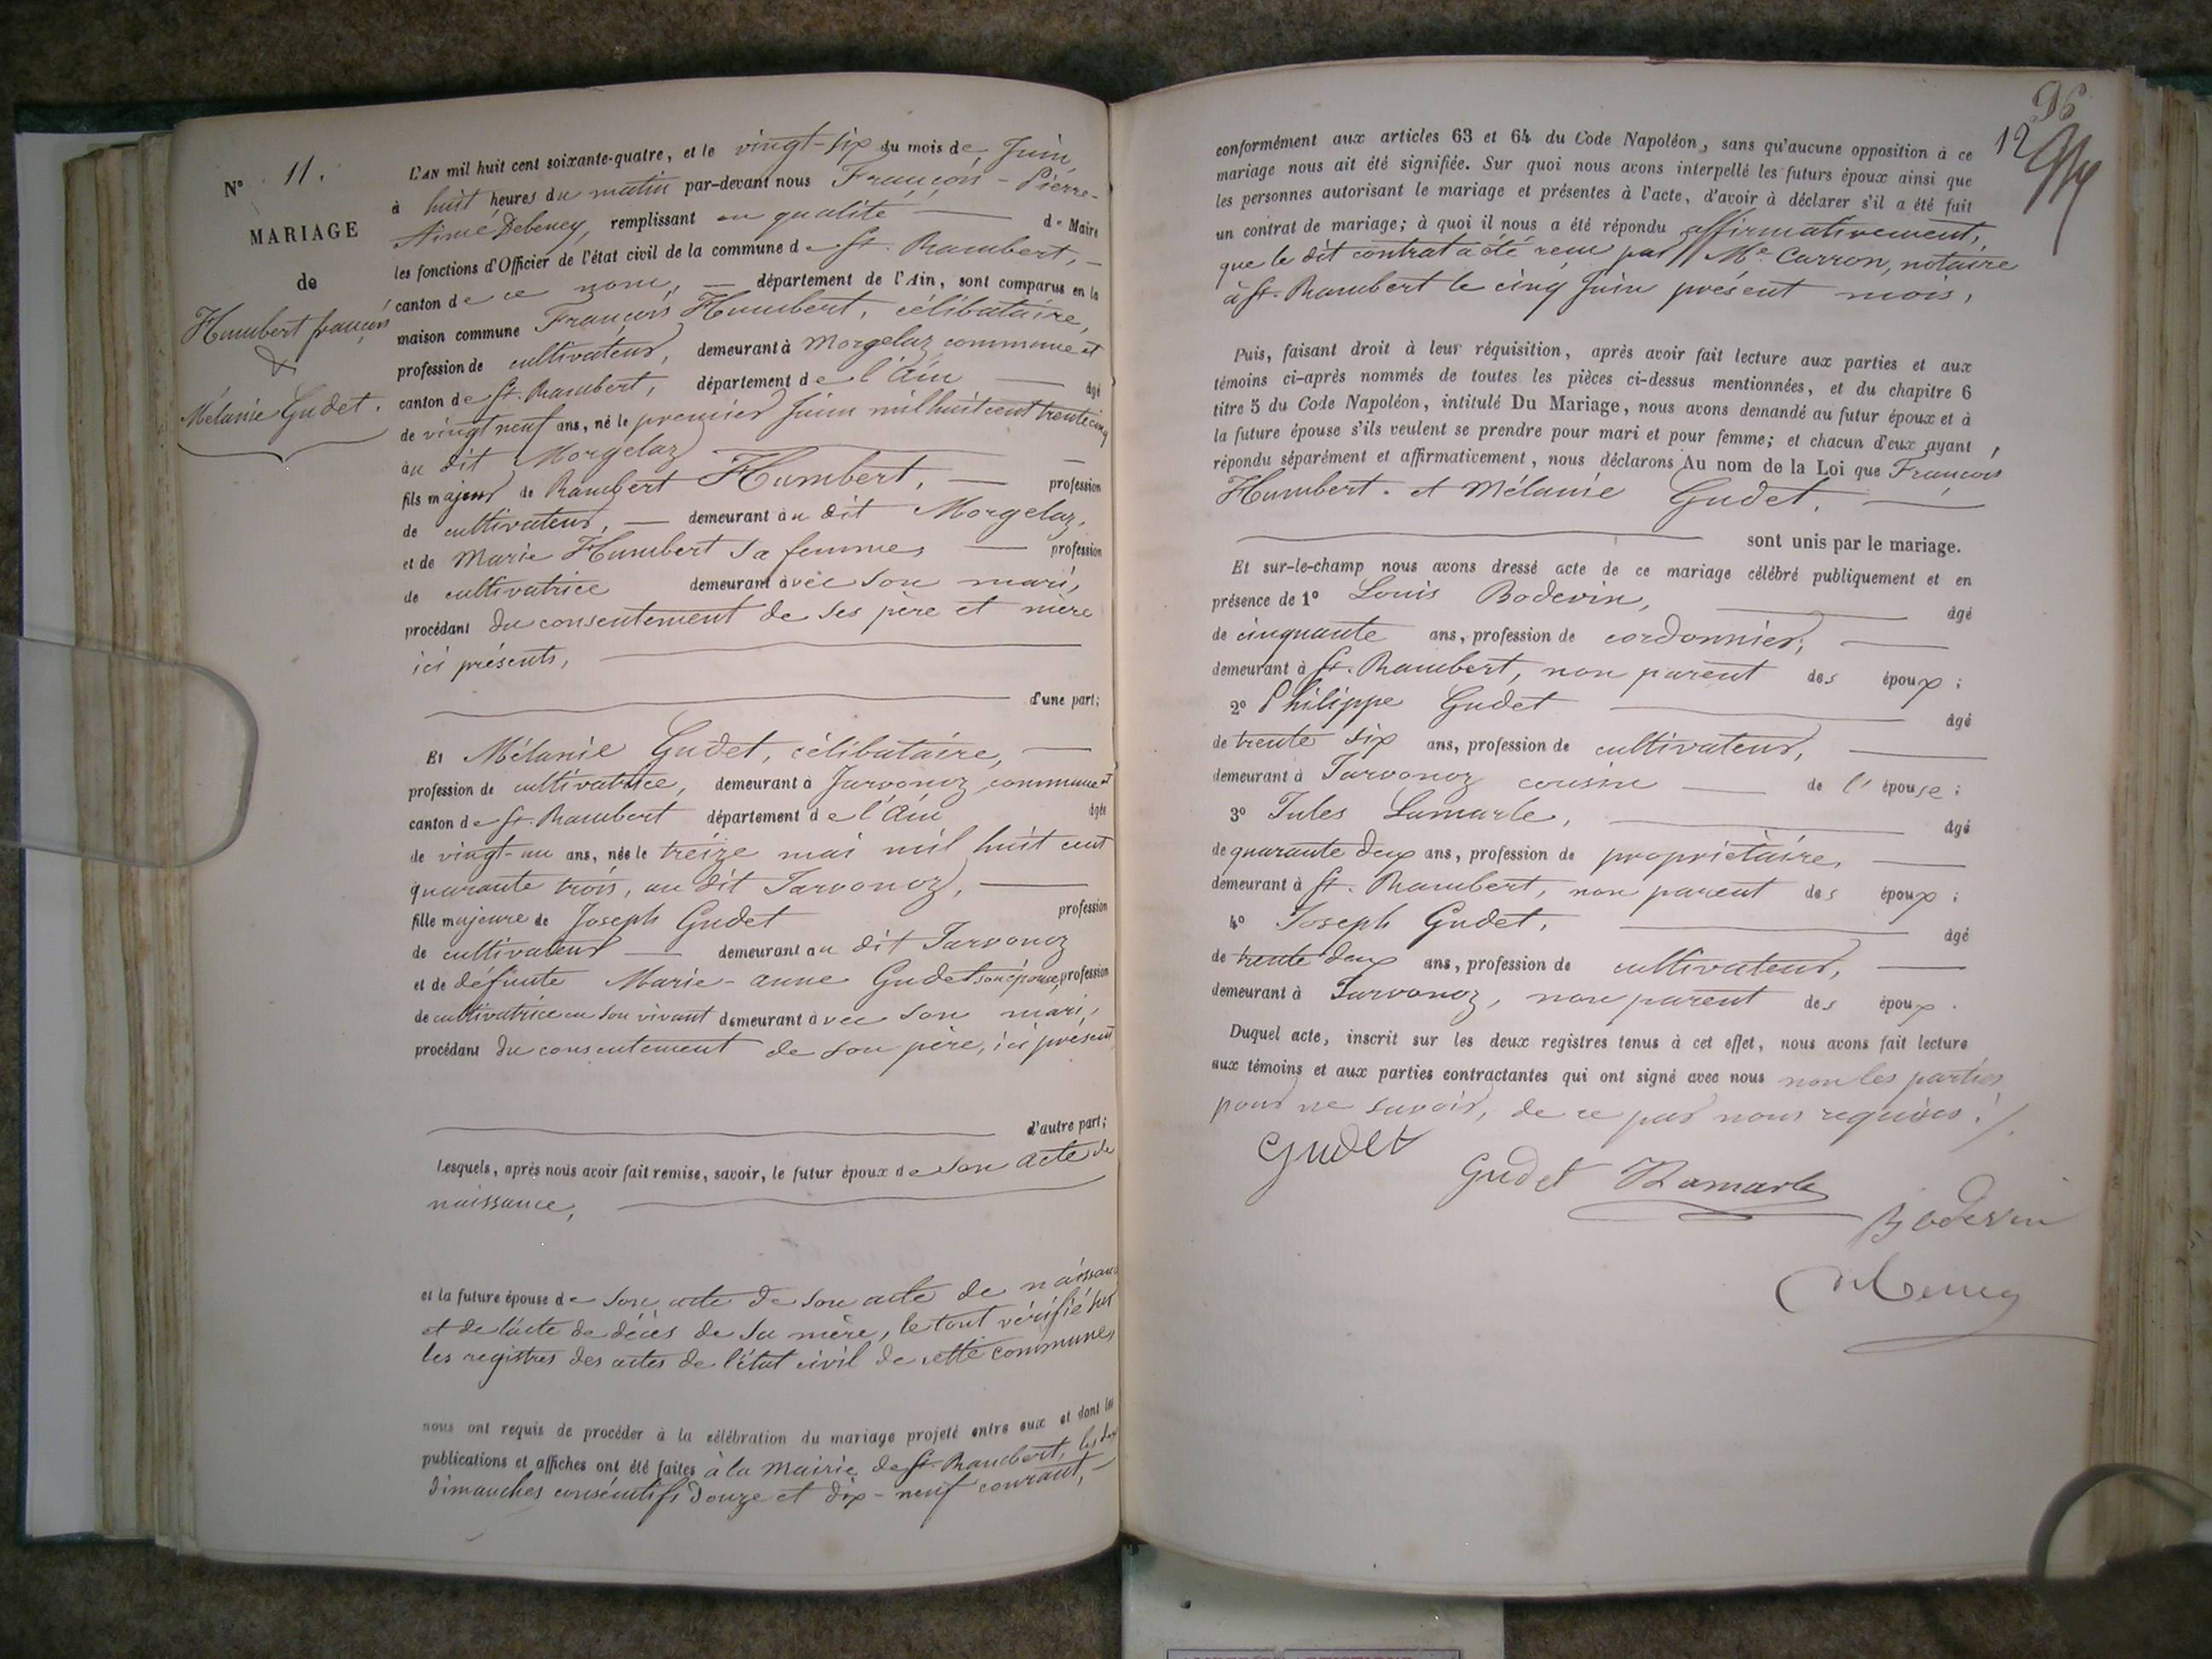 N° 11.
MARIAGE
de
Humbert françois
&
Mélanie Gudet.
L'AN mil huit cent soixante-quatre, et le vingt-six du mois de Juin
à huit heures du matin par-devant nous François - Pierre-
Aimé Debeney, remplissant en qualité de Maire
les fonctions d'Officier de l'état civil de la commune de St. Rambert,
canton de ce nom, département de l'Ain, sont comparus en la
maison commune François Humbert, célibataire,
profession de cultivateur, demeurant à Morgelaz commune et
canton de St. Rambert, département de l'Ain âgé
de vingt neuf ans, né le premier Juin mil huit cent trente cinq
au dit Morgelaz
fils majeur de Rambert Humbert, profession
de cultivateur, demeurant au dit Morgelaz,
et de Marie Humbert sa femme, profession
de cultivatrice demeurant avec son mari,
procédant du consentement de ses père et mère
ici présents,
d'une part;
Et Mélanie Gudet, célibataire,
profession de cultivatrice, demeurant à Javornoz commune et
canton de St. Rambert département de l'Ain âgée
de vingt-un ans, née le treize mai mil huit cent
quarante trois, au dit Javornoz,
fille majeure de Joseph Gudet profession
de cultivateur demeurant au dit Javornoz
et de défunte Marie-anne Gudet son épouse, profession
de cultivatrice en son vivant demeurant avec son mari,
procédant du consentement de son père, ici présent
d'autre part;
Lesquels, après nous avoir fait remise, savoir, le futur époux de son acte de
naissance,
et la future épouse de son acte de son acte de naissance
et de l'acte de décès de sa mère, le tout vérifié sur
les registres des actes de l'état civil de cette commune,
nous ont requis de procéder à la célébration du mariage projeté entre eux et dont les
publications et affiches ont été faites à la Mairie de St. Rambert, les deux
dimanches consécutifs douze et dix-neuf courant,
96
12
conformément aux articles 63 et 64 du Code Napoléon, sans qu'aucune opposition à ce
mariage nous ait été signifiée. Sur quoi nous avons interpellé les futurs époux ainsi que
les personnes autorisant le mariage et présentes à l'acte, d'avoir à déclarer s'il a été fait
un contrat de mariage; à quoi il nous a été répondu affirmativement,
que le dit contrat a été reçu par Me Carron, notaire
à St. Rambert le cinq Juin présent mois,
Puis, faisant droit à leur réquisition, après avoir fait lecture aux parties et aux
témoins ci-après nommés de toutes les pièces ci-dessus mentionnées, et du chapitre 6
titre 5 du Code Napoléon, intitulé Du Mariage, nous avons demandé au futur époux et à
la future épouse s'ils veulent se prendre pour mari et pour femme; et chacun d'eux ayant
répondu séparément et affirmativement, nous déclarons Au nom de la Loi que François
Humbert. et Mélanie Gudet.
sont unis par le mariage.
Et sur-le-champ nous avons dressé acte de ce mariage célébré publiquement et en
présence de 1° Louis Bodevin, âgé
de cinquante ans, profession de cordonnier,
demeurant à St. Rambert, non parent des époux;
2° Philippe Gudet âgé
de trente six ans, profession de cultivateur,
demeurant à Javornoz cousin de l'épouse;
3° Jules Lamarle, âgé
de quarante deux ans, profession de propriétaire,
demeurant à St. Rambert, non parent des époux;
4° Joseph Gudet, âgé
de trente deux ans, profession de cultivateur,
demeurant à Javornoz, non parent des époux.
Duquel acte, inscrit sur les deux registres tenus à cet effet, nous avons fait lecture
aux témoins et aux parties contractantes qui ont signé avec nous non les parties
pour ne savoir, de ce par nous requises./.
Gudet
Gudet Lamarle
Bodevin